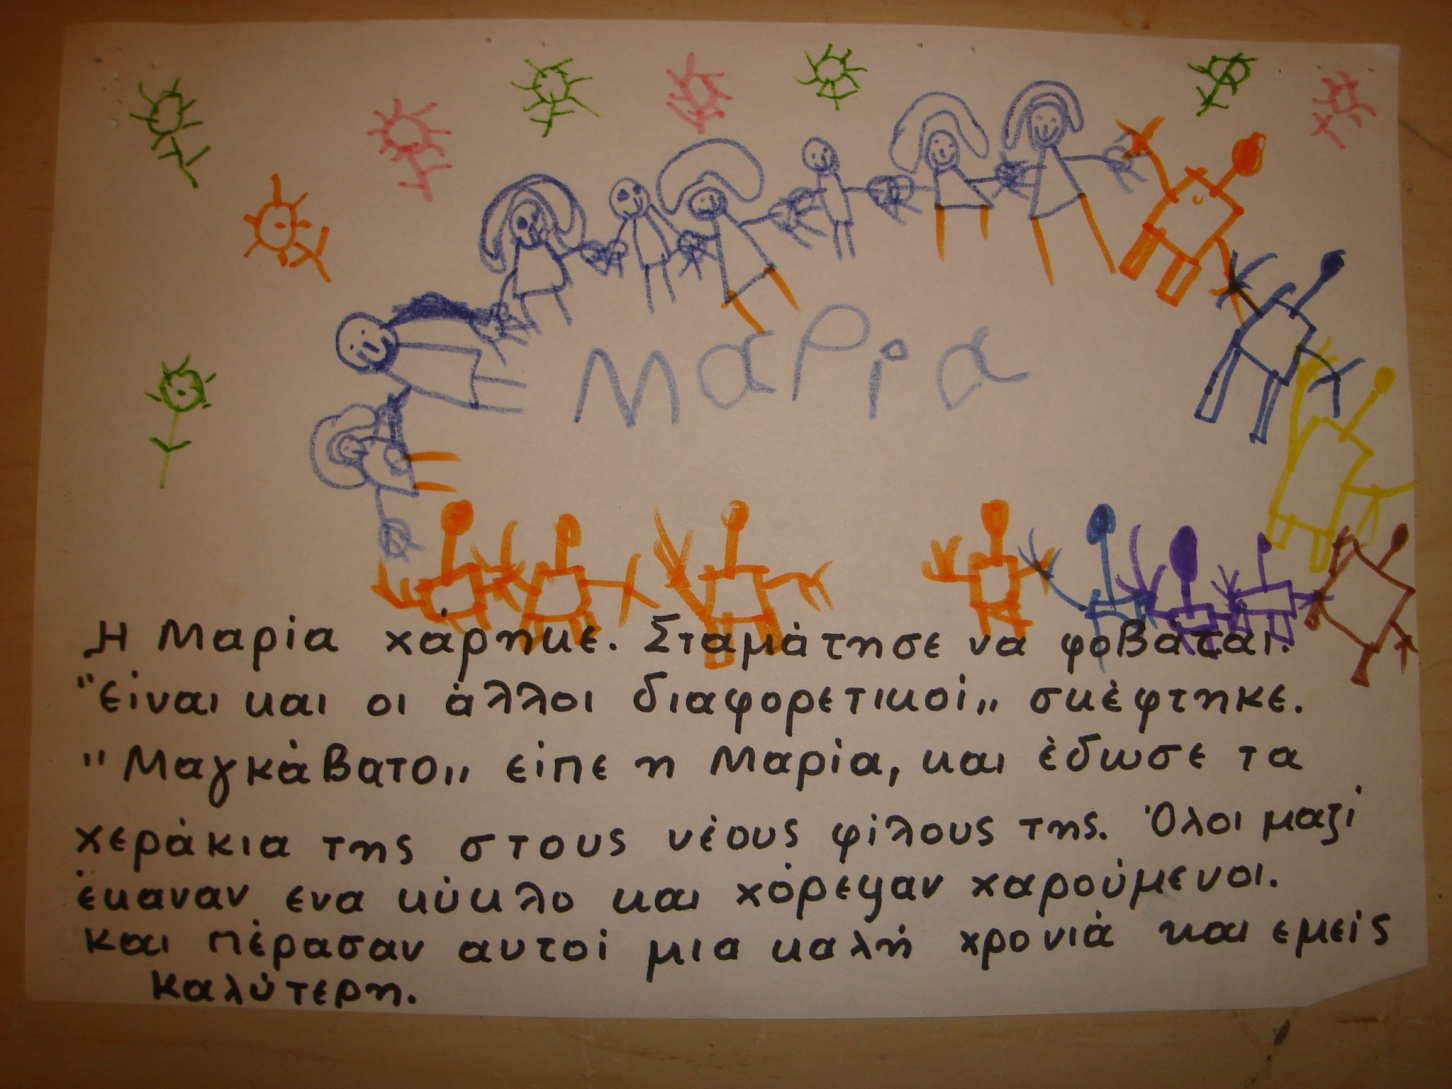 Μαρία
Η Μαρία χάρηκε. Σταμάτησε να φοβαται.
"είναι και οι άλλοι διαφορετικοί,, σκέφτηκε.
"Μαγκάβατο,, είπε η Μαρία, και έδωσε τα
χεράκια της στους νέους φίλους της. Όλοι μαζί
έκαναν ενα κύκλο και χόρεψαν χαρούμενοι.
και πέρασαν αυτοί μια καλή χρονιά και εμείς
καλύτερη.